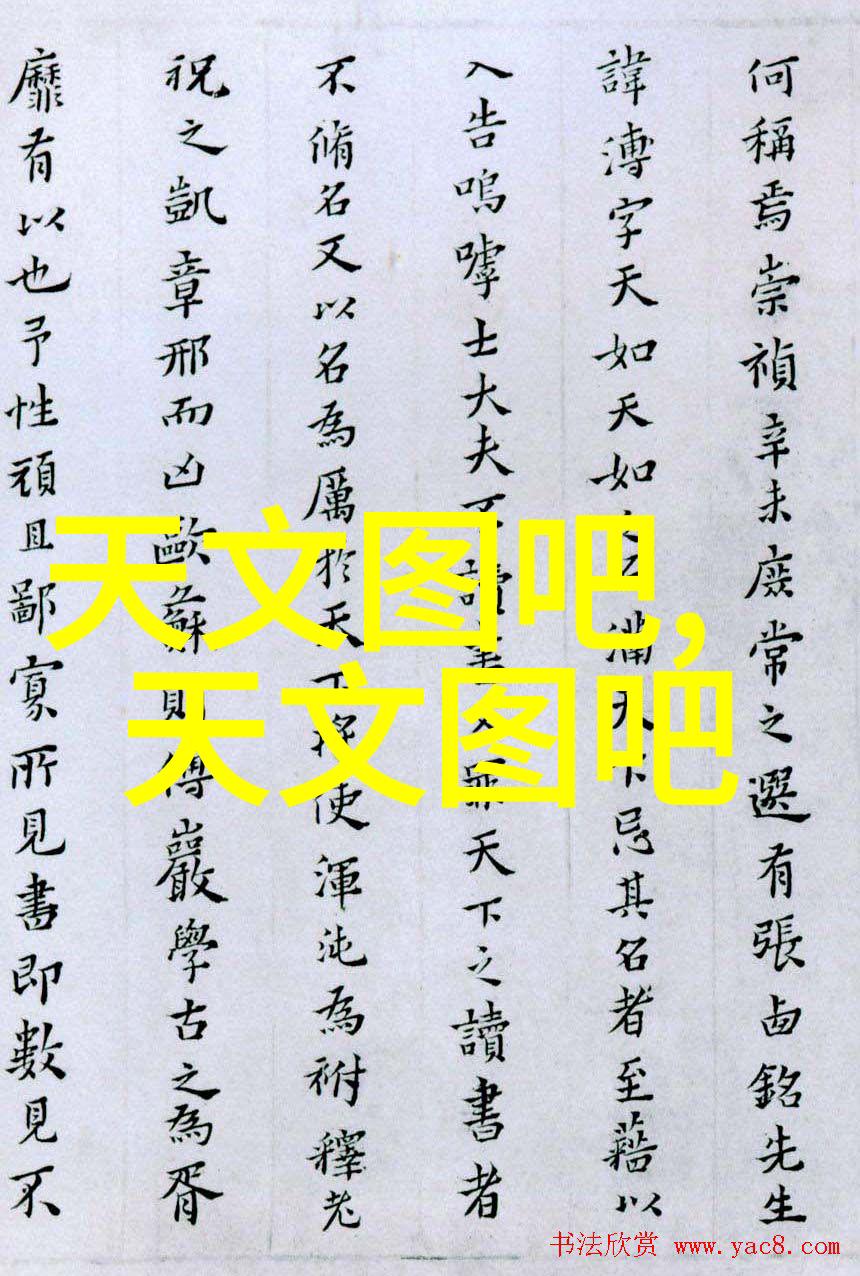 何稱焉崇禎辛未庶常之選有張卤銘先生
諱溥字天如天如之不滿天下忌其名者至藉以
入告嗚嘑士大夫不讀書又罪天下之讀書者
不脩名又以名為厲於天下將使渾沌為祔釋老
祝之凱章邢而凶歐蘇則傅巖學古之為胥
靡有以也予性頑且鄙寡所見書即數見不
天文图吧,
天文图吧
书法欣赏 www.yac8.com